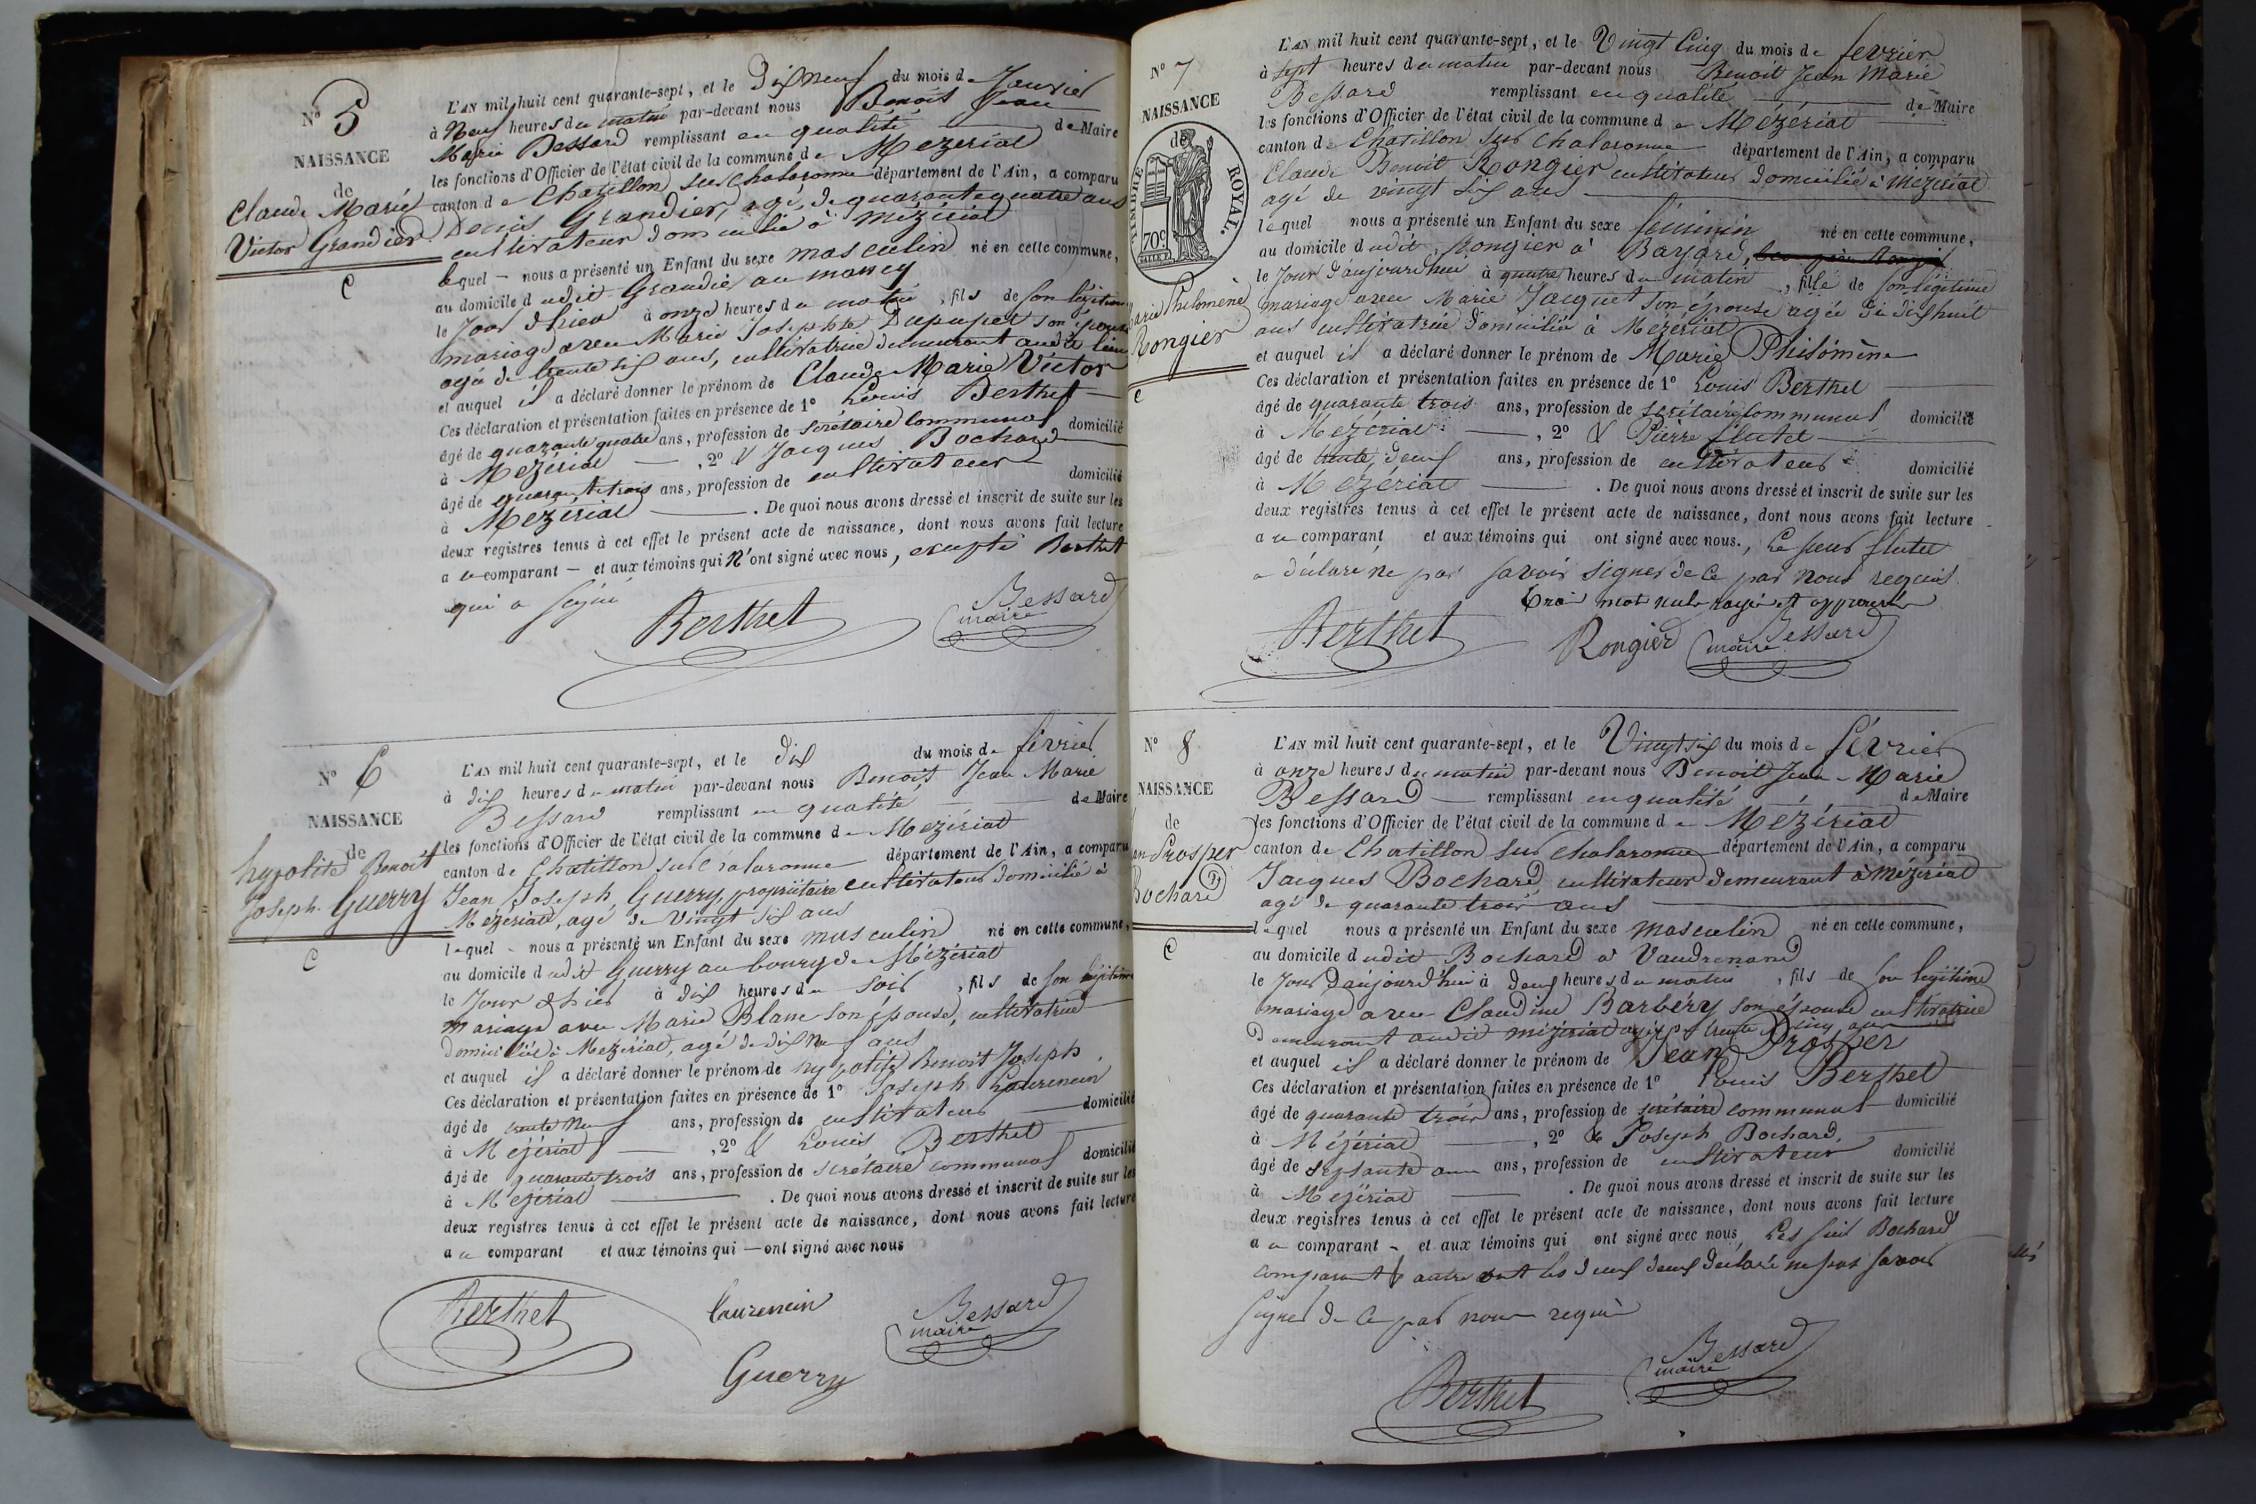 N° 5
NAISSANCE
de
Claude Marie
Victor Grandier
C
L'AN mil huit cent quarante-sept, et le Dix neuf du mois de Janvier
à Neuf heures du matin par-devant nous Benoit Jean
Marie Bessard remplissant en qualité de Maire
les fonctions d'Officier de l'état civil de la commune de Mezeriat
canton de Chatillon sur Chalaronne département de l'Ain, a comparu
Denis Grandier, agé de quarante quatre ans
cultivateur domicilié à Mézériat
lequel nous a présenté un Enfant du sexe masculin né en cette commune,
au domicile dudit Grandier au
le Jour d'hier à onze heures du matin, fils de son légitime
mariage avec Marie Josephte Dupupet son épouse
agée de trente six ans, cultivatrice demeurant audit lieu
et auquel il a déclaré donner le prénom de Claude Marie Victor
Ces déclaration et présentation faites en présence de 1° Louis Berthet
âgé de quarante quatre ans, profession de secrétaire communal domicilié
à Mezériat, 2° & Jacques Bochard
âgé de quarante trois ans, profession de cultivateur domicilié
à Mezeriat. De quoi nous avons dressé et inscrit de suite sur les
deux registres tenus à cet effet le présent acte de naissance, dont nous avons fait lecture
a ce comparant et aux témoins qui N'ont signé avec nous, excepté Berthet
qui a signé
Berthet
Bessard
maire
N° 6
NAISSANCE
de
hypolite Benoit
Joseph Guerry
C
L'AN mil huit cent quarante-sept, et le dix du mois de février
à dix heures du matin par-devant nous Benoit Jean Marie
Bessard remplissant en qualité de Maire
les fonctions d'Officier de l'état civil de la commune de Mézériat
canton de Chatillon sur Chalaronne département de l'Ain, a comparu
Jean Joseph Guerry, propriétaire cultivateur domicilié à
Mézériat, agé de Vingt six ans
lequel nous a présenté un Enfant du sexe masculin né en cette commune,
au domicile dudit Guerry au bourg de Mézériat
le Jour d'hier à dix heures du soir, fils de son légitime
mariage avec Marie Blanc son épouse, cultivatrice
domiciliée à Mezériat, agé de dix neuf ans
et auquel il a déclaré donner le prénom de hypolite Benoit Joseph
Ces déclaration et présentation faites en présence de 1° Joseph Laurencin
âgé de trente neuf ans, profession de cultivateur domicilié
à Mézériat, 2° & Louis Berthet
âgé de quarante trois ans, profession de secrétaire communal domicilié
à Mézériat. De quoi nous avons dressé et inscrit de suite sur les
deux registres tenus à cet effet le présent acte de naissance, dont nous avons fait lecture
a ce comparant et aux témoins qui ont signé avec nous
Berthet
Laurencin
Bessard
maire
Guerry
N° 7
NAISSANCE
de
TIMBRE ROYAL.
70c
Marie Philomène
Rongier
C
L'AN mil huit cent quarante-sept, et le Vingt Cinq du mois de fevrier
à sept heures du matin par-devant nous Benoit Jean Marie
Bessard remplissant en qualité de Maire
les fonctions d'Officier de l'état civil de la commune de Mézériat
canton de Chatillon sur Chalaronne département de l'Ain, a comparu
Claude Benoit Rongier cultivateur domicilié à Mézériat
agé de vingt six ans
lequel nous a présenté un Enfant du sexe féminin né en cette commune,
au domicile dudit Rongier à Bayard,
le Jour d'aujourdhui à quatre heures du matin, fille de son légitime
mariage avec Marie Jacquet son épouse agée de dix huit
ans cultivatrice domiciliée à Mézériat
et auquel il a déclaré donner le prénom de Marie Philomène
Ces déclaration et présentation faites en présence de 1° Louis Berthet
âgé de quarante trois ans, profession de secrétaire communal domicilié
à Mézériat, 2° & Pierre flutet
âgé de trente deux ans, profession de cultivateur domicilié
à Mézériat. De quoi nous avons dressé et inscrit de suite sur les
deux registres tenus à cet effet le présent acte de naissance, dont nous avons fait lecture
a ce comparant et aux témoins qui ont signé avec nous, Le sieur flutet
a déclaré ne pas savoir signer de ce par nous requis
trois mots nuls rayés et approuvés
Berthet
Rongier
Bessard
maire
N° 8
NAISSANCE
de
Jean Prosper
Bochard
C
L'AN mil huit cent quarante-sept, et le Vingt six du mois de février
à onze heures du matin par-devant nous Benoit Jean Marie
Bessard remplissant en qualité de Maire
les fonctions d'Officier de l'état civil de la commune de Mézériat
canton de Chatillon sur Chalaronne département de l'Ain, a comparu
Jacques Bochard, cultivateur demeurant à Mézériat
agé de quarante trois ans
lequel nous a présenté un Enfant du sexe masculin né en cette commune,
au domicile dudit Bochard à Vaudrenand
le Jour d'aujourd'hui à deux heures du matin, fils de son légitime
mariage avec Claudine Barbéry son épouse cultivatrice
demeurant audit mézériat agée de trente cinq ans
et auquel il a déclaré donner le prénom de Jean Prosper
Ces déclaration et présentation faites en présence de 1° Louis Berthet
âgé de quarante trois ans, profession de secrétaire communal domicilié
à Mézériat, 2° & Joseph Bochard,
âgé de septante ans, profession de cultivateur domicilié
à Mézériat. De quoi nous avons dressé et inscrit de suite sur les
deux registres tenus à cet effet le présent acte de naissance, dont nous avons fait lecture
a ce comparant et aux témoins qui ont signé avec nous, Les sieurs Bochard
comparant & autre ont les deux déclaré ne pas savoir
signer de ce par nous requis
Berthet
Bessard
maire